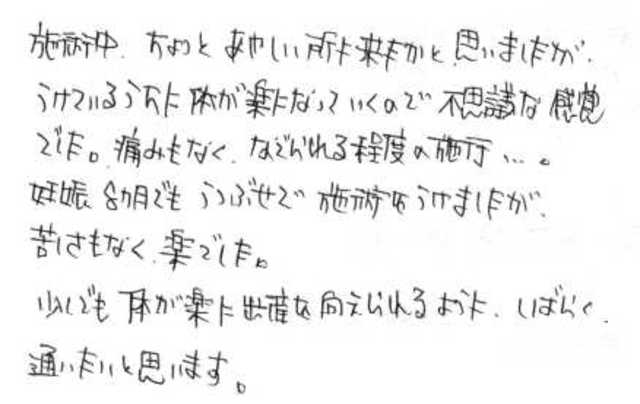 施術中、ちょっとあやしい所に来たかと思いましたが、
うけているうちに体が楽になっていくので不思議な感覚
でした。痛みもなく、なでられる程度の施行…。
妊娠8カ月でもうつぶせで施術をうけましたが、
苦しさもなく、楽でした。
少しでも体が楽に出産を向えられるように、しばらく、
通いたいと思います。